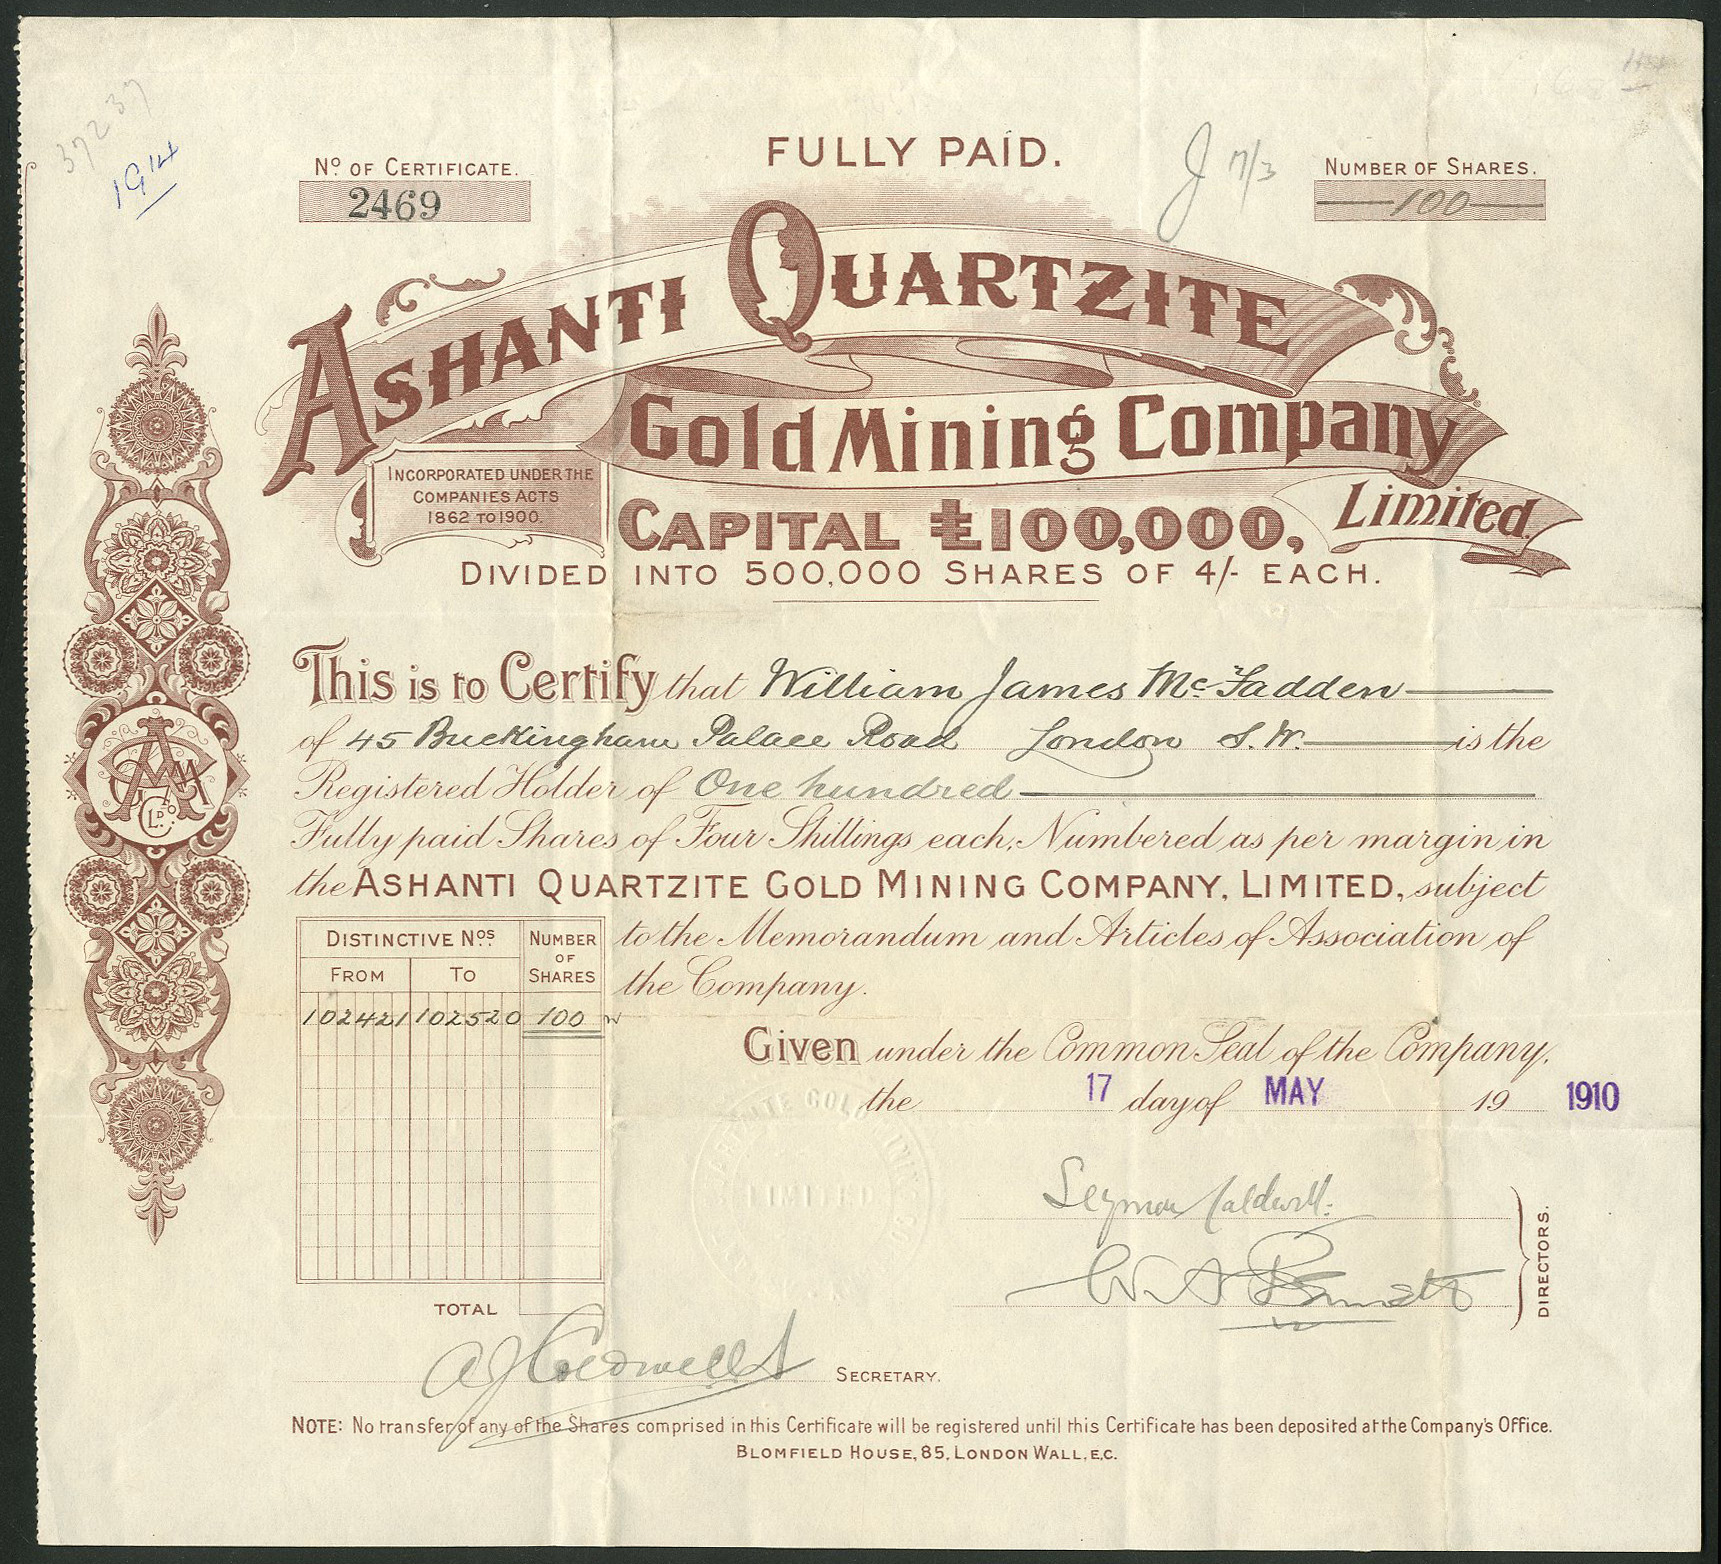 37237
1914
FULLY PAID.
J 7/3
Nº OF CERTIFICATE.
2469
NUMBER OF SHARES.
100
ASHANTI QUARTZITE
Gold Mining Company
Limited.
INCORPORATED UNDER THE
COMPANIES ACTS
1862 TO 1900.
CAPITAL £100,000,
DIVIDED INTO 500,000 SHARES OF 4/- EACH.
This is to Certify that William James McFadden
of 45 Buckingham Palace Road London S.W. is the
Registered Holder of One hundred
Fully paid Shares of Four Shillings each, Numbered as per margin in
the ASHANTI QUARTZITE GOLD MINING COMPANY, LIMITED, subject
to the Memorandum and Articles of Association of
the Company.
DISTINCTIVE Nos. NUMBER OF SHARES
FROM TO
102421 102520 100
Given under the Common Seal of the Company,
the 17 day of MAY 19 1910
LIMITED
Seymour Caldwell
DIRECTORS.
TOTAL
SECRETARY.
NOTE: No transfer of any of the Shares comprised in this Certificate will be registered until this Certificate has been deposited at the Company's Office.
BLOMFIELD HOUSE, 85, LONDON WALL, E.C.